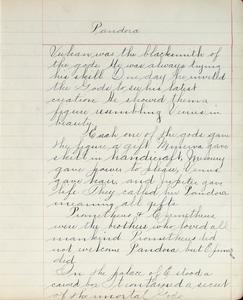 Pandora
Vulcan was the blacksmith of
the gods. He was always trying
his skill. One day he invited
the Gods to see his latest
creation. He showed them a
figure resembling Venus in
beauty.
Each one of the gods gave
the figure a gift. Minerva gave
skill in handicraft, Mercury
gave power to please, Venus
gave and Jupiter gave
life. They called her Pandora
meaning all gifts.
Prometheus & Epimetheus
were the brothers who loved all
mankind. Prometheus did
not welcome Pandora but Epime
did.
In the palace of E stood a
carved box. It contained a secret
of the immortal Gods